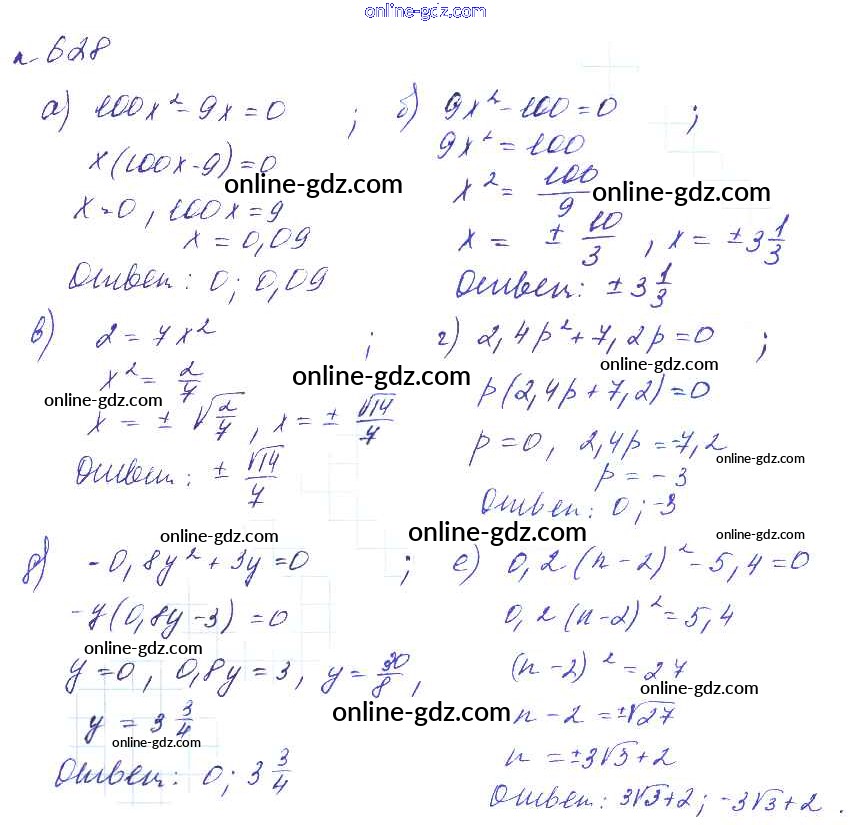 online-gdz.com
n 628
а) 100x² - 9x = 0 ;
x(100x - 9) = 0
online-gdz.com
x = 0, 100x = 9
x = 0,09
Ответ: 0; 0,09
б) 9x² - 100 = 0 ;
9x² = 100
x² = 100/9
online-gdz.com
x = ± 10/3, x = ± 3 1/3
Ответ: ± 3 1/3
в) 2 = 7x² ;
x² = 2/7
online-gdz.com
online-gdz.com
x = ± √2/7, x = ± √14/7
Ответ: ± √14/7
г) 2,4p² + 7,2p = 0 ;
online-gdz.com
p(2,4p + 7,2) = 0
p = 0, 2,4p = -7,2
online-gdz.com
p = - 3
Ответ: 0; -3
online-gdz.com
online-gdz.com
д) -0,8y² + 3y = 0 ;
-y(0,8y - 3) = 0
online-gdz.com
y = 0, 0,8y = 3, y = 30/8,
online-gdz.com
y = 3 3/4
online-gdz.com
Ответ: 0; 3 3/4
online-gdz.com
е) 0,2(n - 2)² - 5,4 = 0
0,2(n - 2)² = 5,4
(n - 2)² = 27
online-gdz.com
n - 2 = ±√27
n = ±3√3 + 2
Ответ: 3√3 + 2; -3√3 + 2.